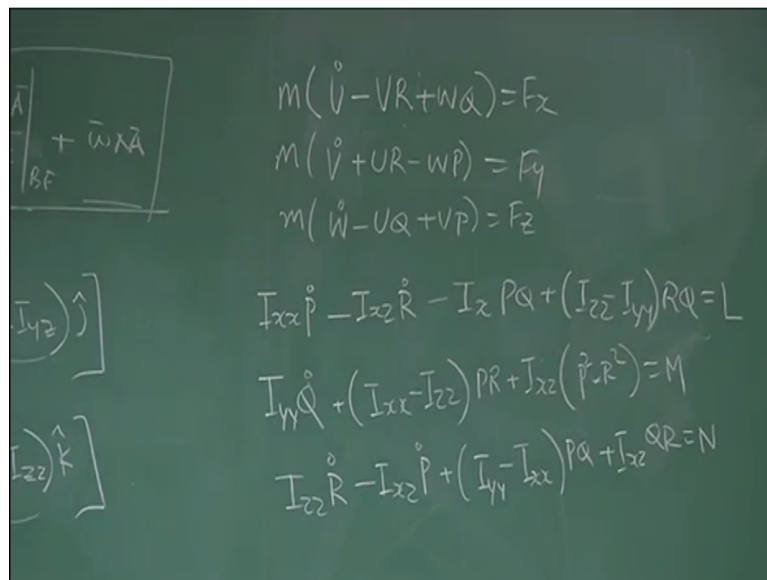 Ā| + ω̄×Ā
BF
I_yz) ĵ]
I_zz) k̂]
m(U̇ - VR + WQ) = Fx
m(V̇ + UR - WP) = Fy
m(Ẇ - UQ + VP) = Fz
I_xx Ṗ - I_xz Ṙ - I_x PQ + (I_zz - I_yy) RQ = L
I_yy Q̇ + (I_xx - I_zz) PR + I_xz (P² - R²) = M
I_zz Ṙ - I_xz Ṗ + (I_yy - I_xx) PQ + I_xz QR = N